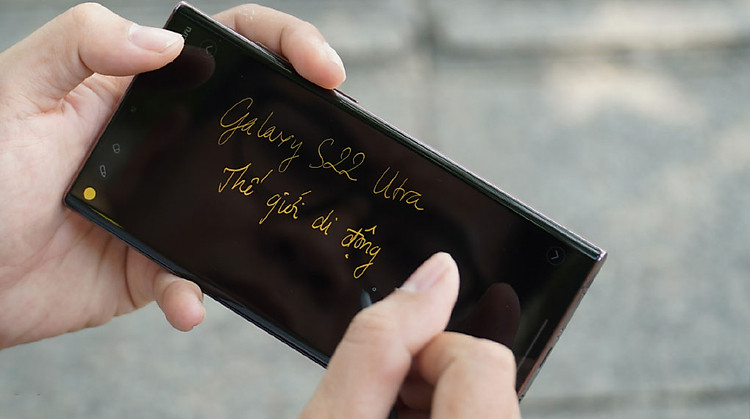 Galaxy S22 Utra
Thế giới di động